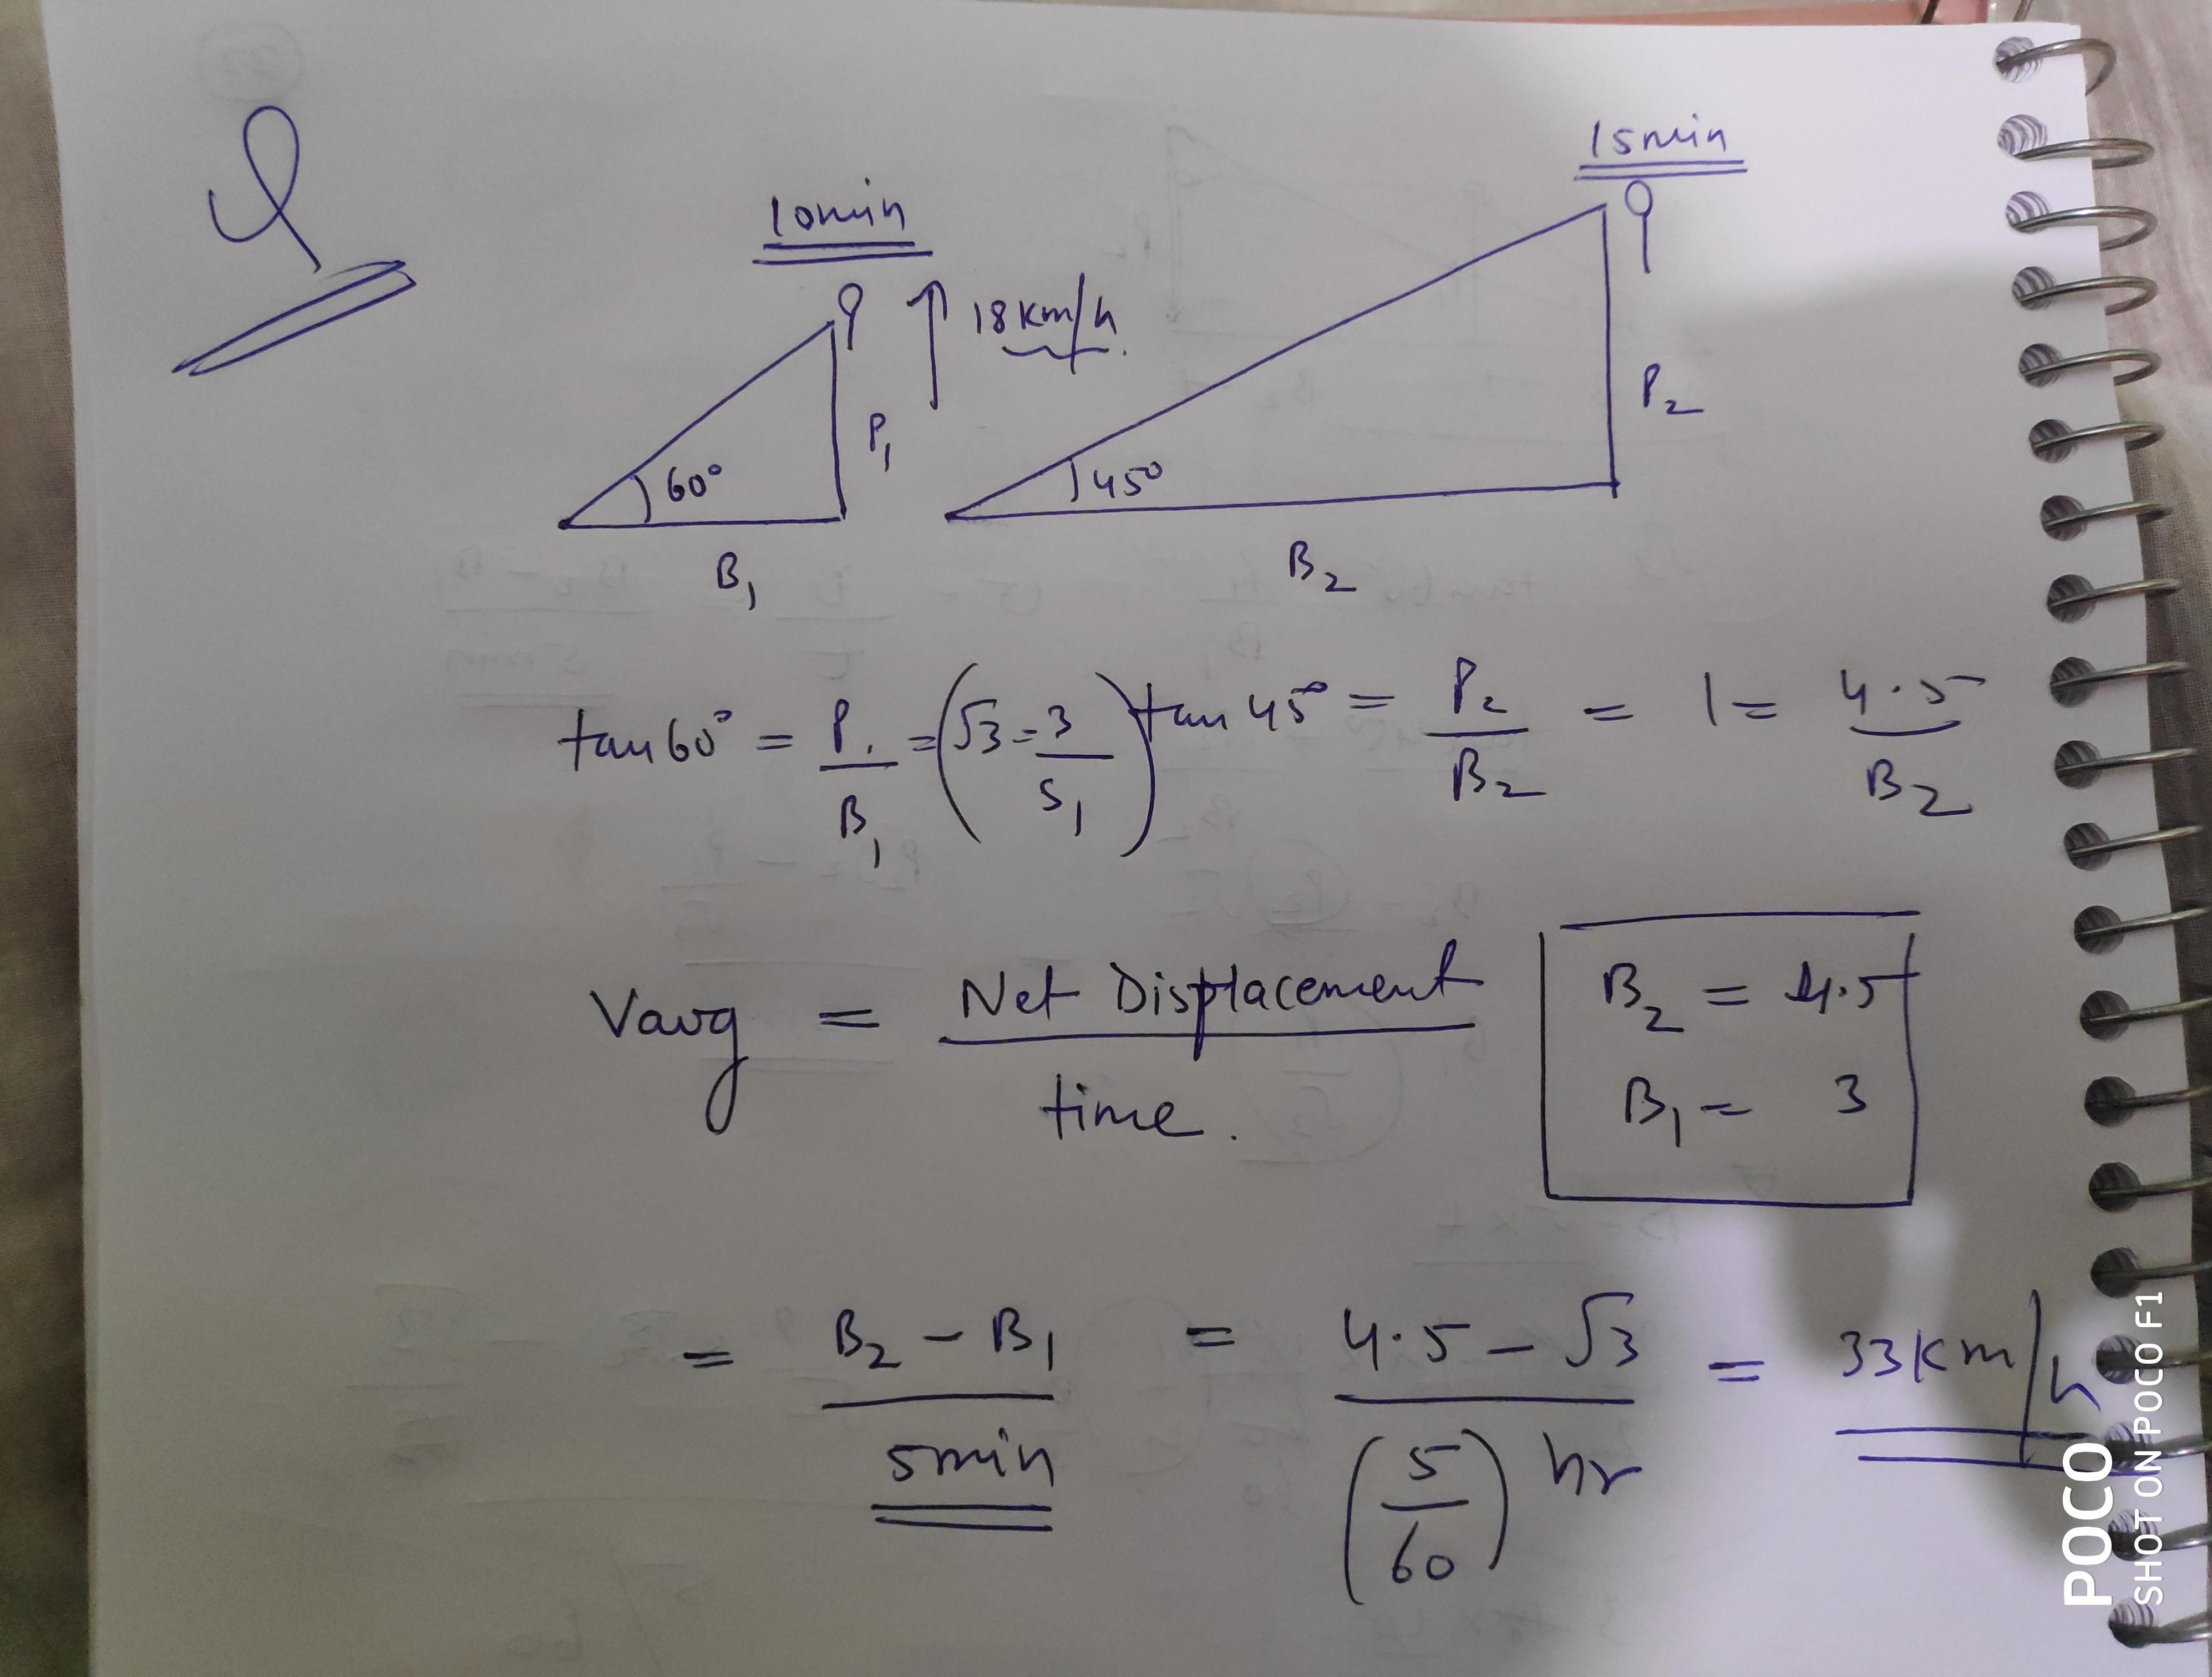 10min
15min
18 km/h
P₁
P₂
60°
45°
B₁
B₂
tan 60° = P₁/B₁ = (√3 = 3/S₁) tan 45° = P₂/B₂ = 1 = 4.5/B₂
Vavg = Net Displacement / time.
B₂ = 4.5
B₁ = 3
= B₂ - B₁ / 5min = 4.5 - √3 / (5/60) hr = 33 km/h
POCO
SHOT ON POCO F1